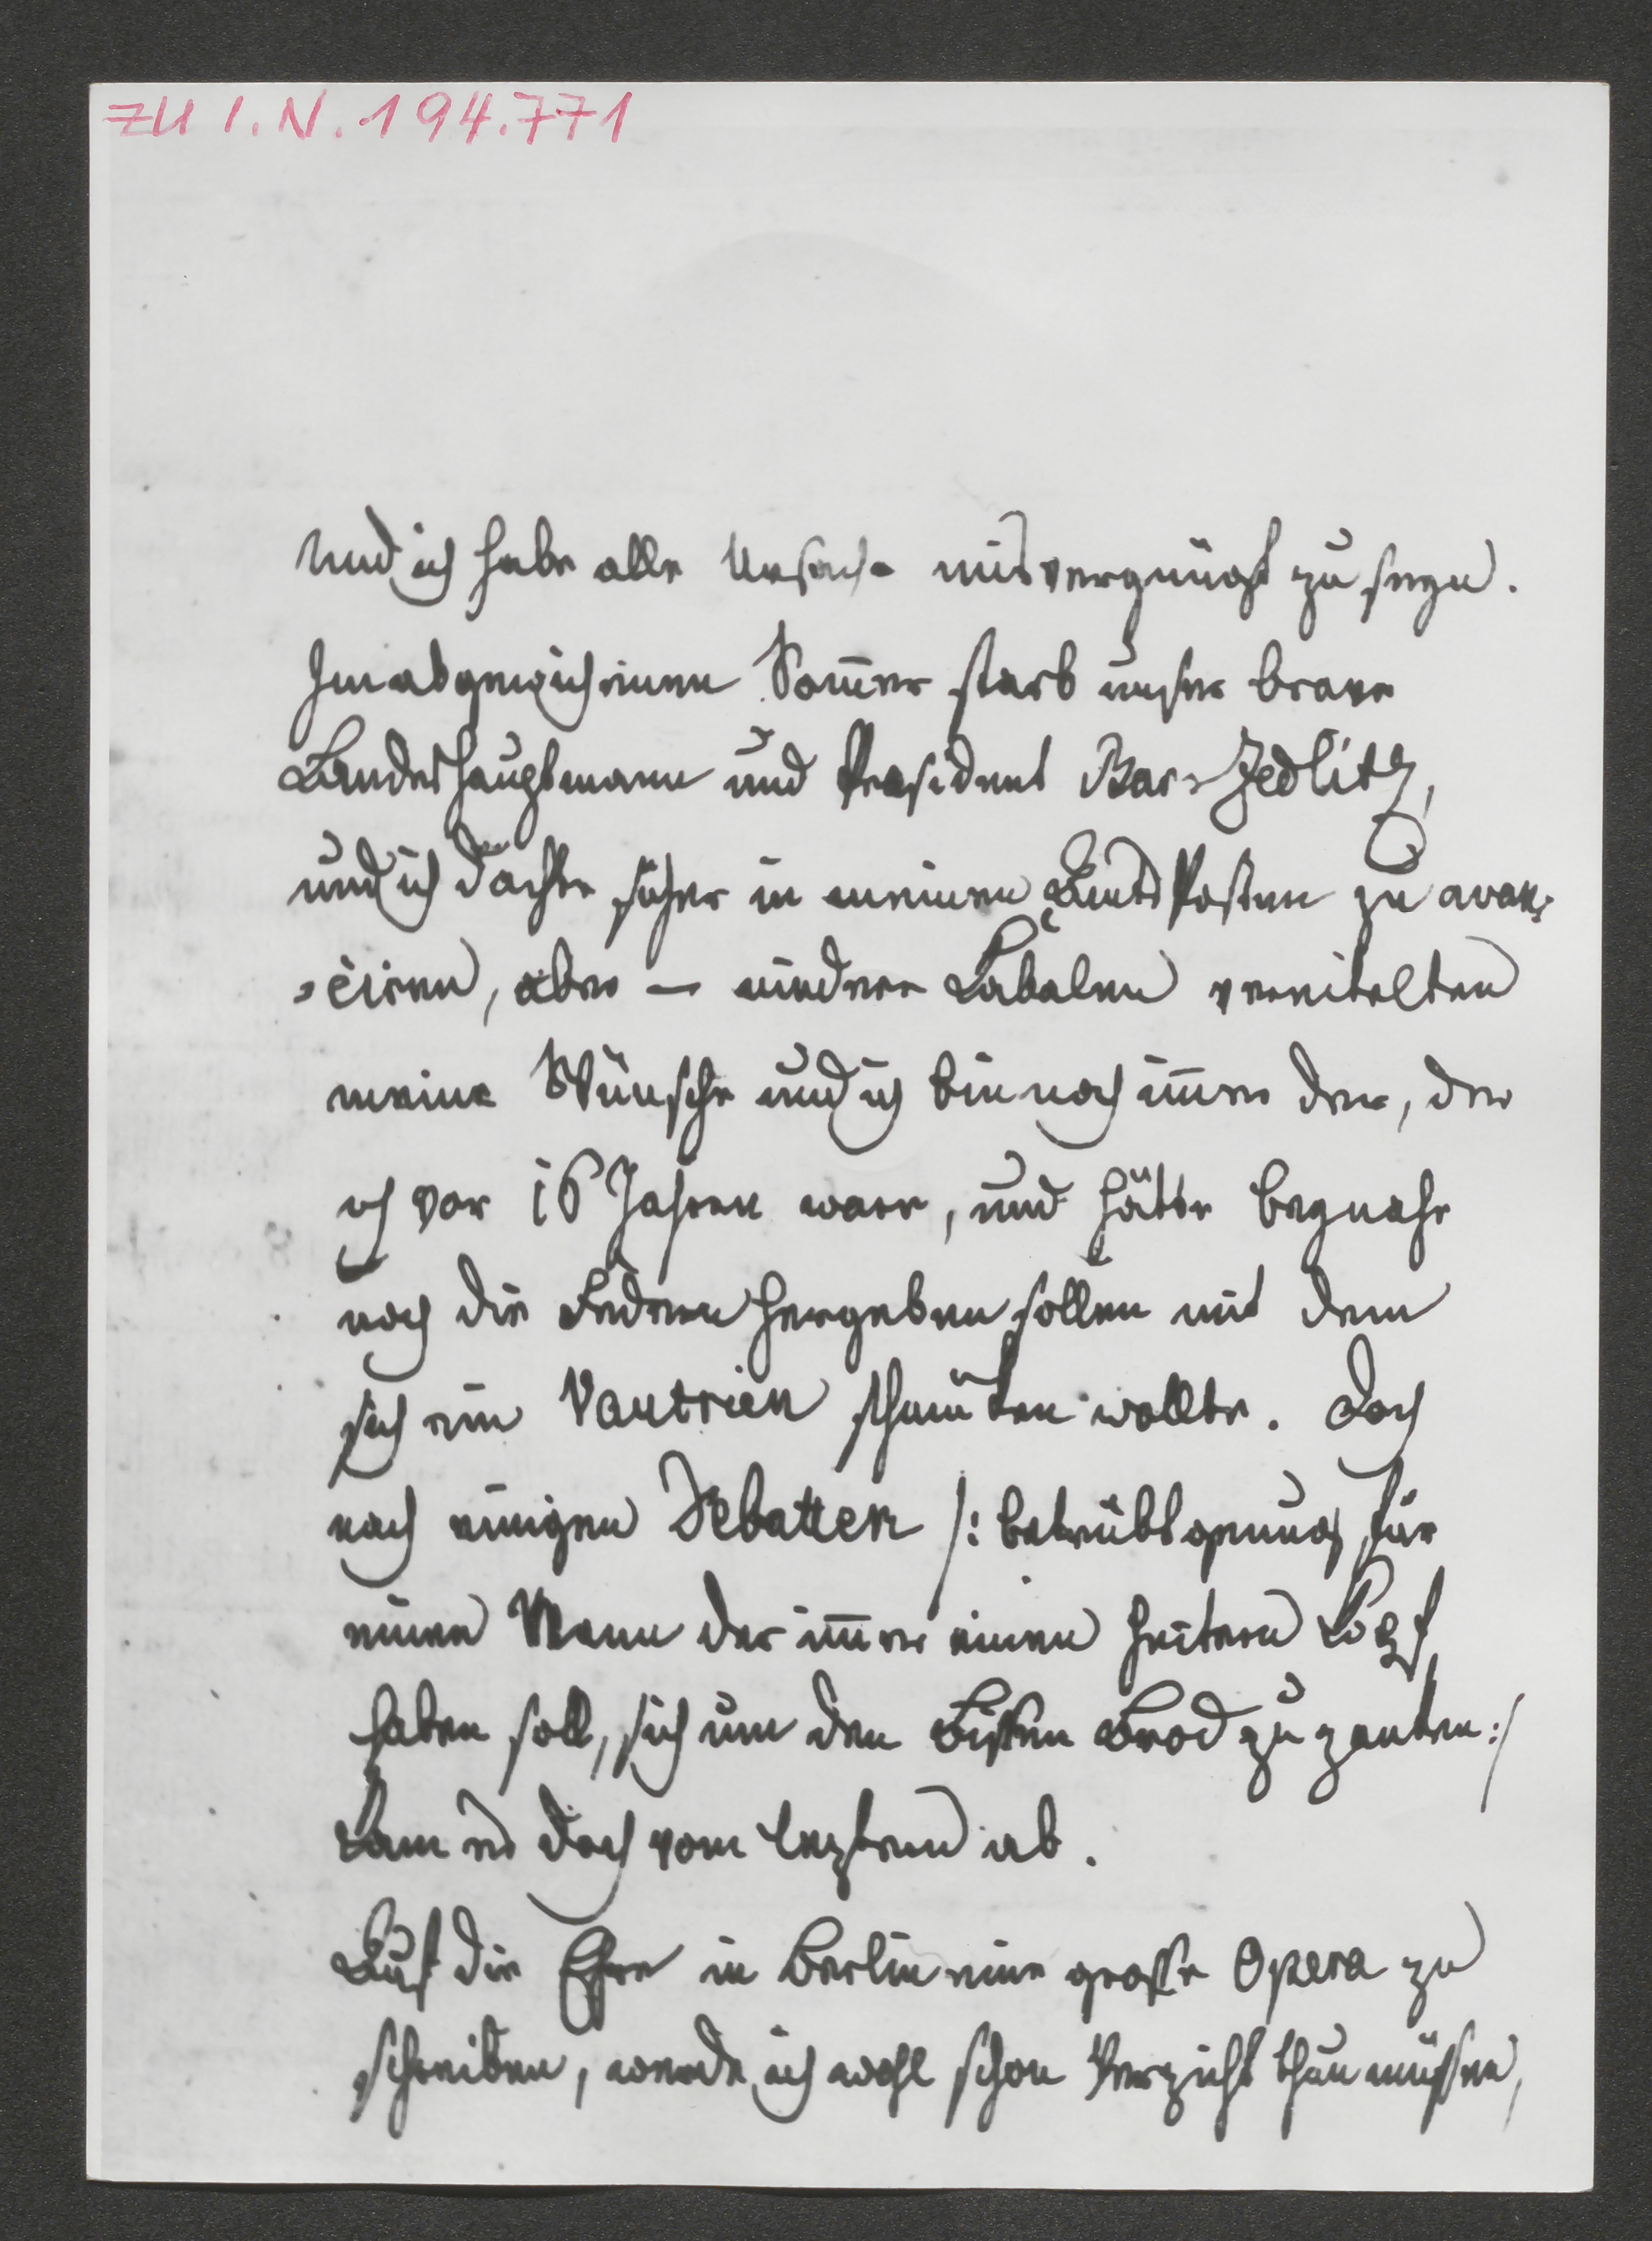 ZU I.N. 194.771
Und ich habe alle Ursache misvergnügt zu seyn.
Im abgewichenen Som̄er starb unser brave
Landeshauptmann und Praesident Bar. Zedlitz,
und ich dachte sicher in meinem Amts Posten zu avan=
=ciren, aber — niedere Kabalen vereitelten
meine Wünsche und ich bin noch im̄er der, der
ich vor 16 Jahren war, und hätte beynahe
noch die Federn hergeben sollen mit denen
sich ein Vautrien schmüken wollte. Doch
nach einigen Debatten /: betrübt genug für
einen Mann der im̄er einen heitern Kopf
haben soll, sich um den Bissen Brod zu zanken :/
kam es doch vom leztern ab.
Auf die Ehre in Berlin eine große Opera zu
schreiben, werde ich wohl schon Verzicht thun müssen,